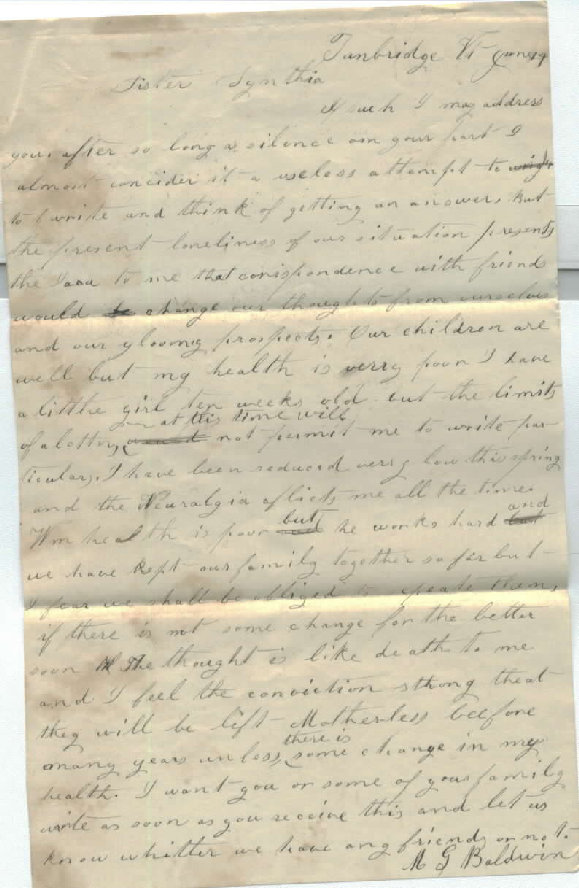 Tunbridge Vt June 19
Sister Synthia
As such I may address
you, after so long a silence on your part I
almost concider it a useless attempt to
to write and think of getting an answer, But
the present loneliness of our situation presents
the Idea to me that corispondence with friends
would change our thoughts from ourselves
and our gloomy prospects. Our children are
well but my health is verry poor I have
a litthe girl ten weeks old but the limits
of a letter at this time will not permit me to write par
ticulars, I have been reduced verry low this spring
and the Neuralgia aflicts me all the time
Wm health is poor but he works hard and
we have kept our family together so far but
I fear we shall be obliged to them,
if there is not some change for the better
soon The thought is like death to me
and I feel the conviction strong that
they will be left Motherless beefore
many years unless there is some change in my
health. I want you or some of your family
write as soon as you receive this and let us
know whitter we have any friends or not.
M G Baldwin